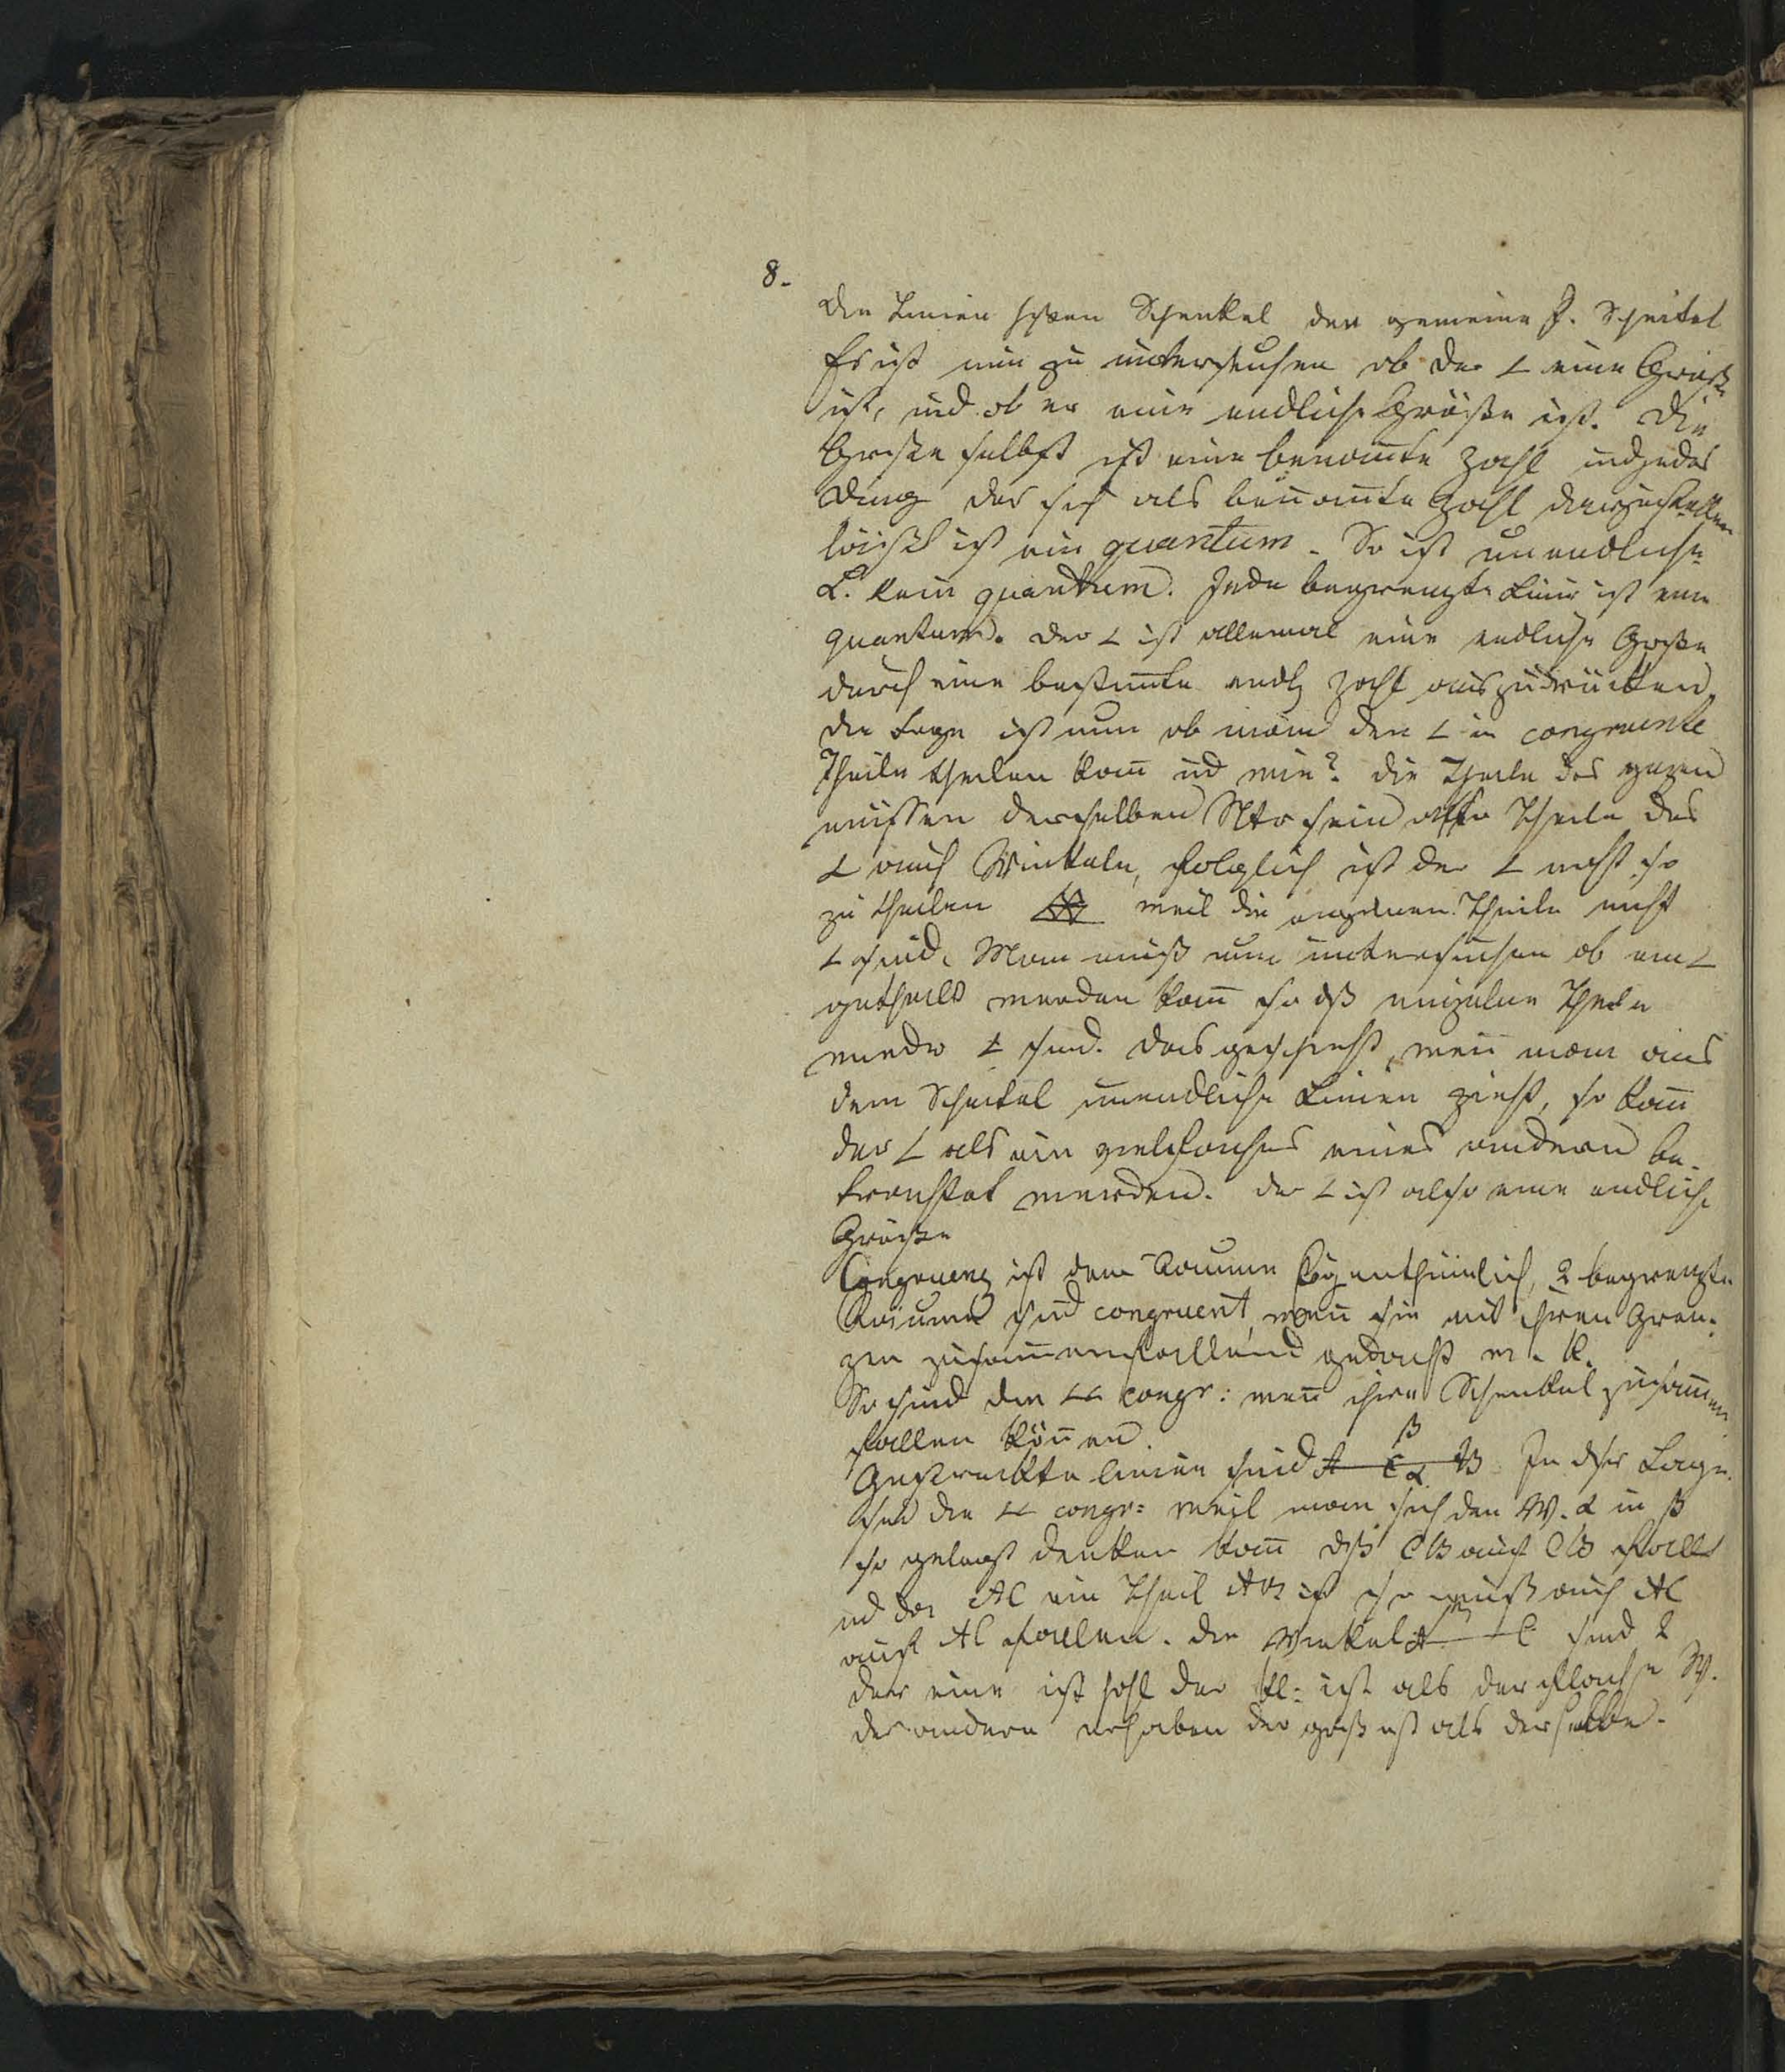 8.
Die Linien heißen Schenkel der gemeine P. Scheitel
Es ist nun zu untersuchen ob der ∠ eine Größe
ist, und ob er eine endliche Größe ist. Die
Größe selbst ist eine benan̄te Zahl und jedes
Ding das sich als benan̄te Zahl darstellen
läißt ist ein quantum. So ist unendliche
L. kein quantum. Jede begrenzte Linie ist ein
quantum. Der ∠ ist allemal eine endliche Größe
durch eine bestim̄te endl Zahl auszudrücken.
Die Frage ist nun ob man den ∠ in congruente
Theile theilen kan̄ ud wie? die Theile des
müssen derselben Art sein also Theile des
∠ auch Winkeln, folglich ist der ∠ nicht so
zu theilen weil die Theile nicht
∠ sind. Man muß nun untersuchen ob ein ∠
getheilt werden kan̄ so dß einzelne Theile
wieder ∠ sind. Das geschieht, wen̄ man aus
dem Scheitel unendliche Linien zieht, so kan̄
der ∠ als ein vielfaches eines andern be-
trachtet werden. Der ∠ ist also eine endliche
Größe
Congruenz ist dem Raume Eigenthümlich, 2 begrenzte
Räume sind congruent, wen̄ sie mit ihren Gren-
zen zusam̄enfallend gedacht w. k.
So sind die ∠∠ congr: wen̄ ihre Schenkel zusam̄en
fallen kön̄en.
Gestreckte linien sind A C B In dser Lage
β
α
sind die ∠∠ congr: weil man sich den W. α in β
so gelegt denken kan̄ dß CB auf CB fällt
ud da AC ein Theil AB ist so muß auch AC
auf AC fallen. Die Winkel A C sind 2
der eine ist hohl der kl: ist als der flache W.
der andere erhaben der groß ist als derselbe.